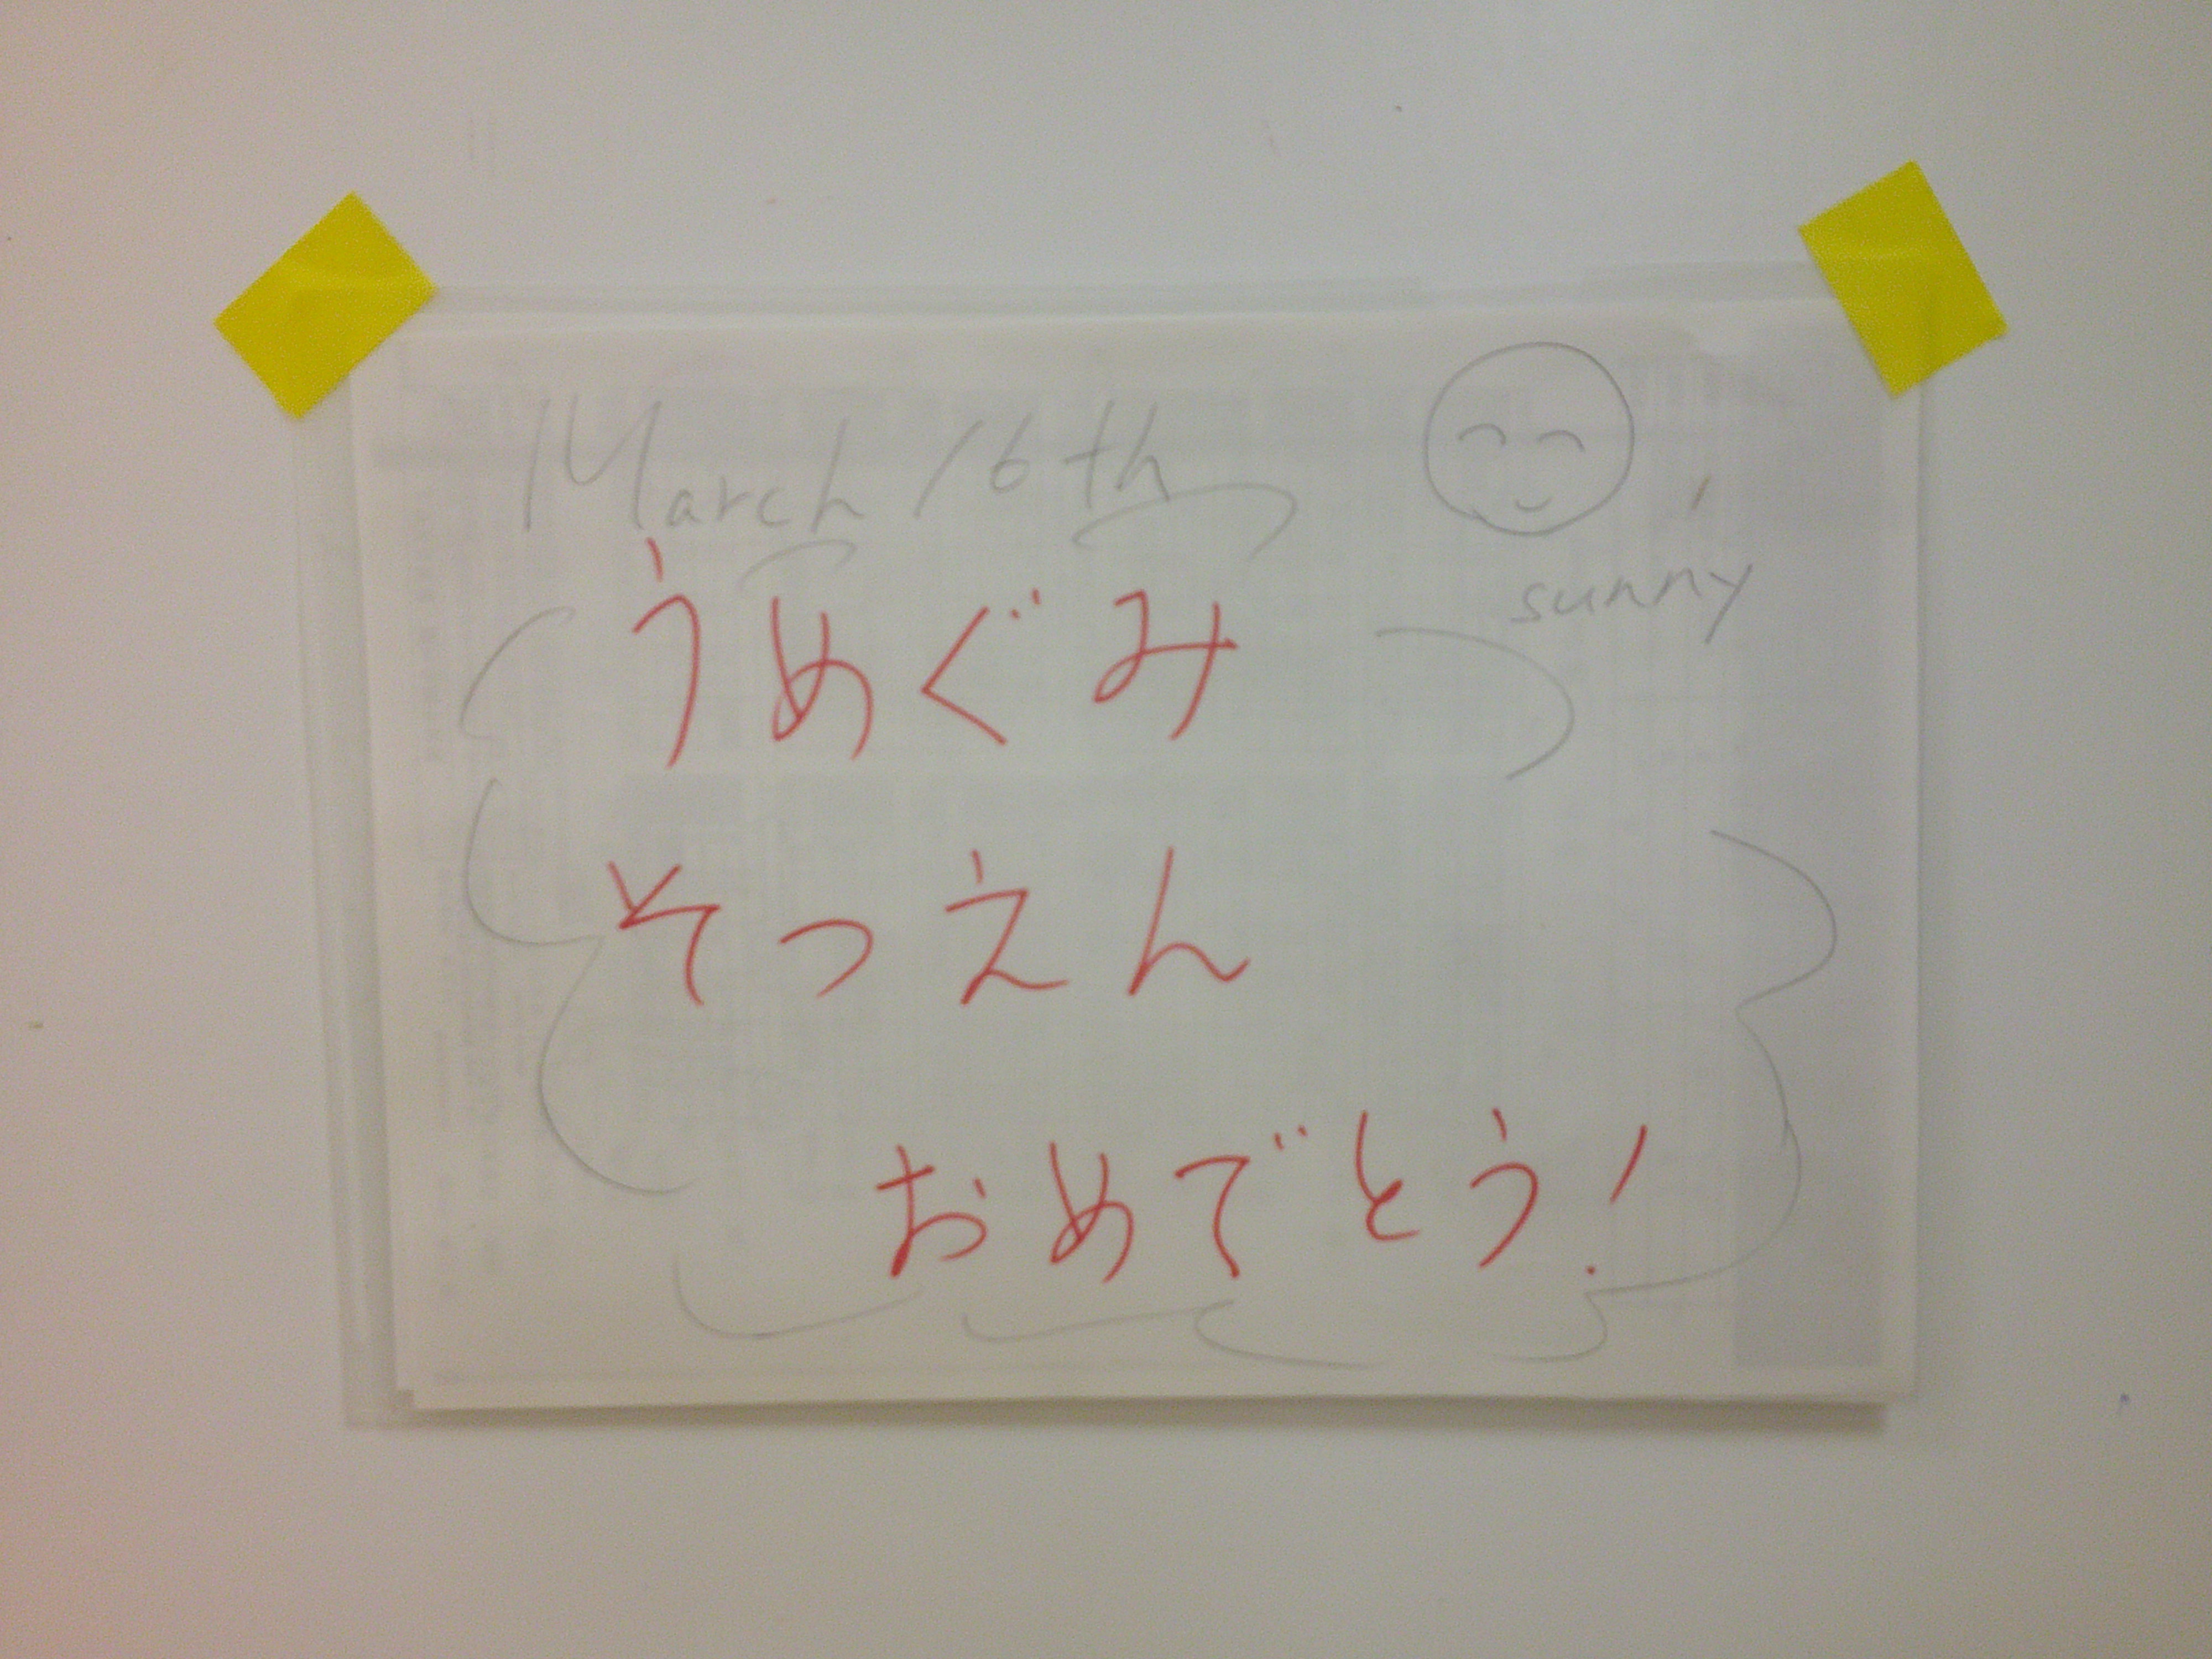 March 16th
sunny
うめぐみ
そつえん
おめでとう!